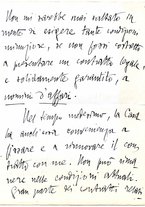 Non mi sarebbe mai saltato in
mente di esigere tante condizioni
minuziose, se non fossi costretto
a presentare un contratto legale,
e solidamente garantito, a
uomini d'affari.
Nel tempo medesimo, la Casa
ha anch'essa
fissare e a rinnovare il con
tratto con me. Non può rima
nere nelle condizioni attuali.
Gran parte dei contratti relati